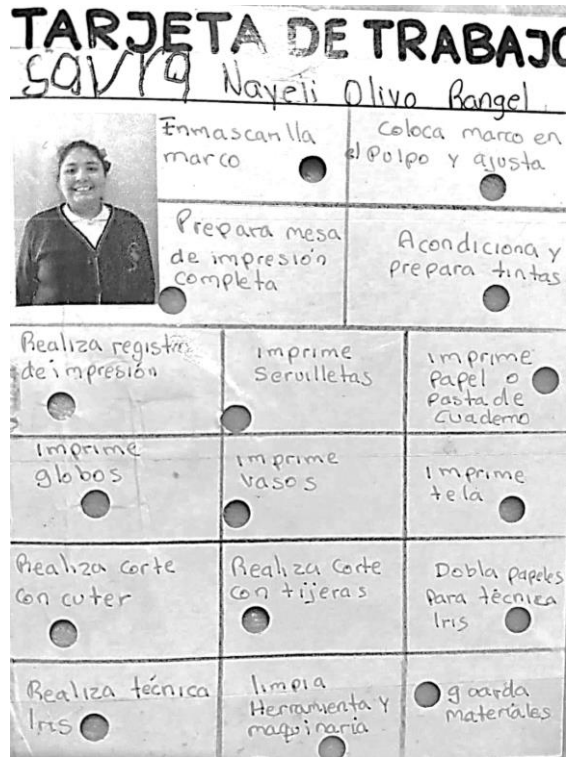 TARJETA DE TRABAJO
Nayeli Olivo Rangel
Enmascarilla
marco
Coloca marco en
el pulpo y ajusta
Prepara mesa
de impresión
completa
Acondiciona y
prepara tintas
Realiza registro
de impresión
imprime
Servilletas
imprime
papel o
pasta de
cuaderno
imprime
globos
imprime
vasos
imprime
tela
Realiza corte
con cuter
Realiza corte
con tijeras
Dobla papeles
para técnica
Iris
Realiza técnica
Iris
limpia
Herramienta y
maquinaria
guarda
materiales